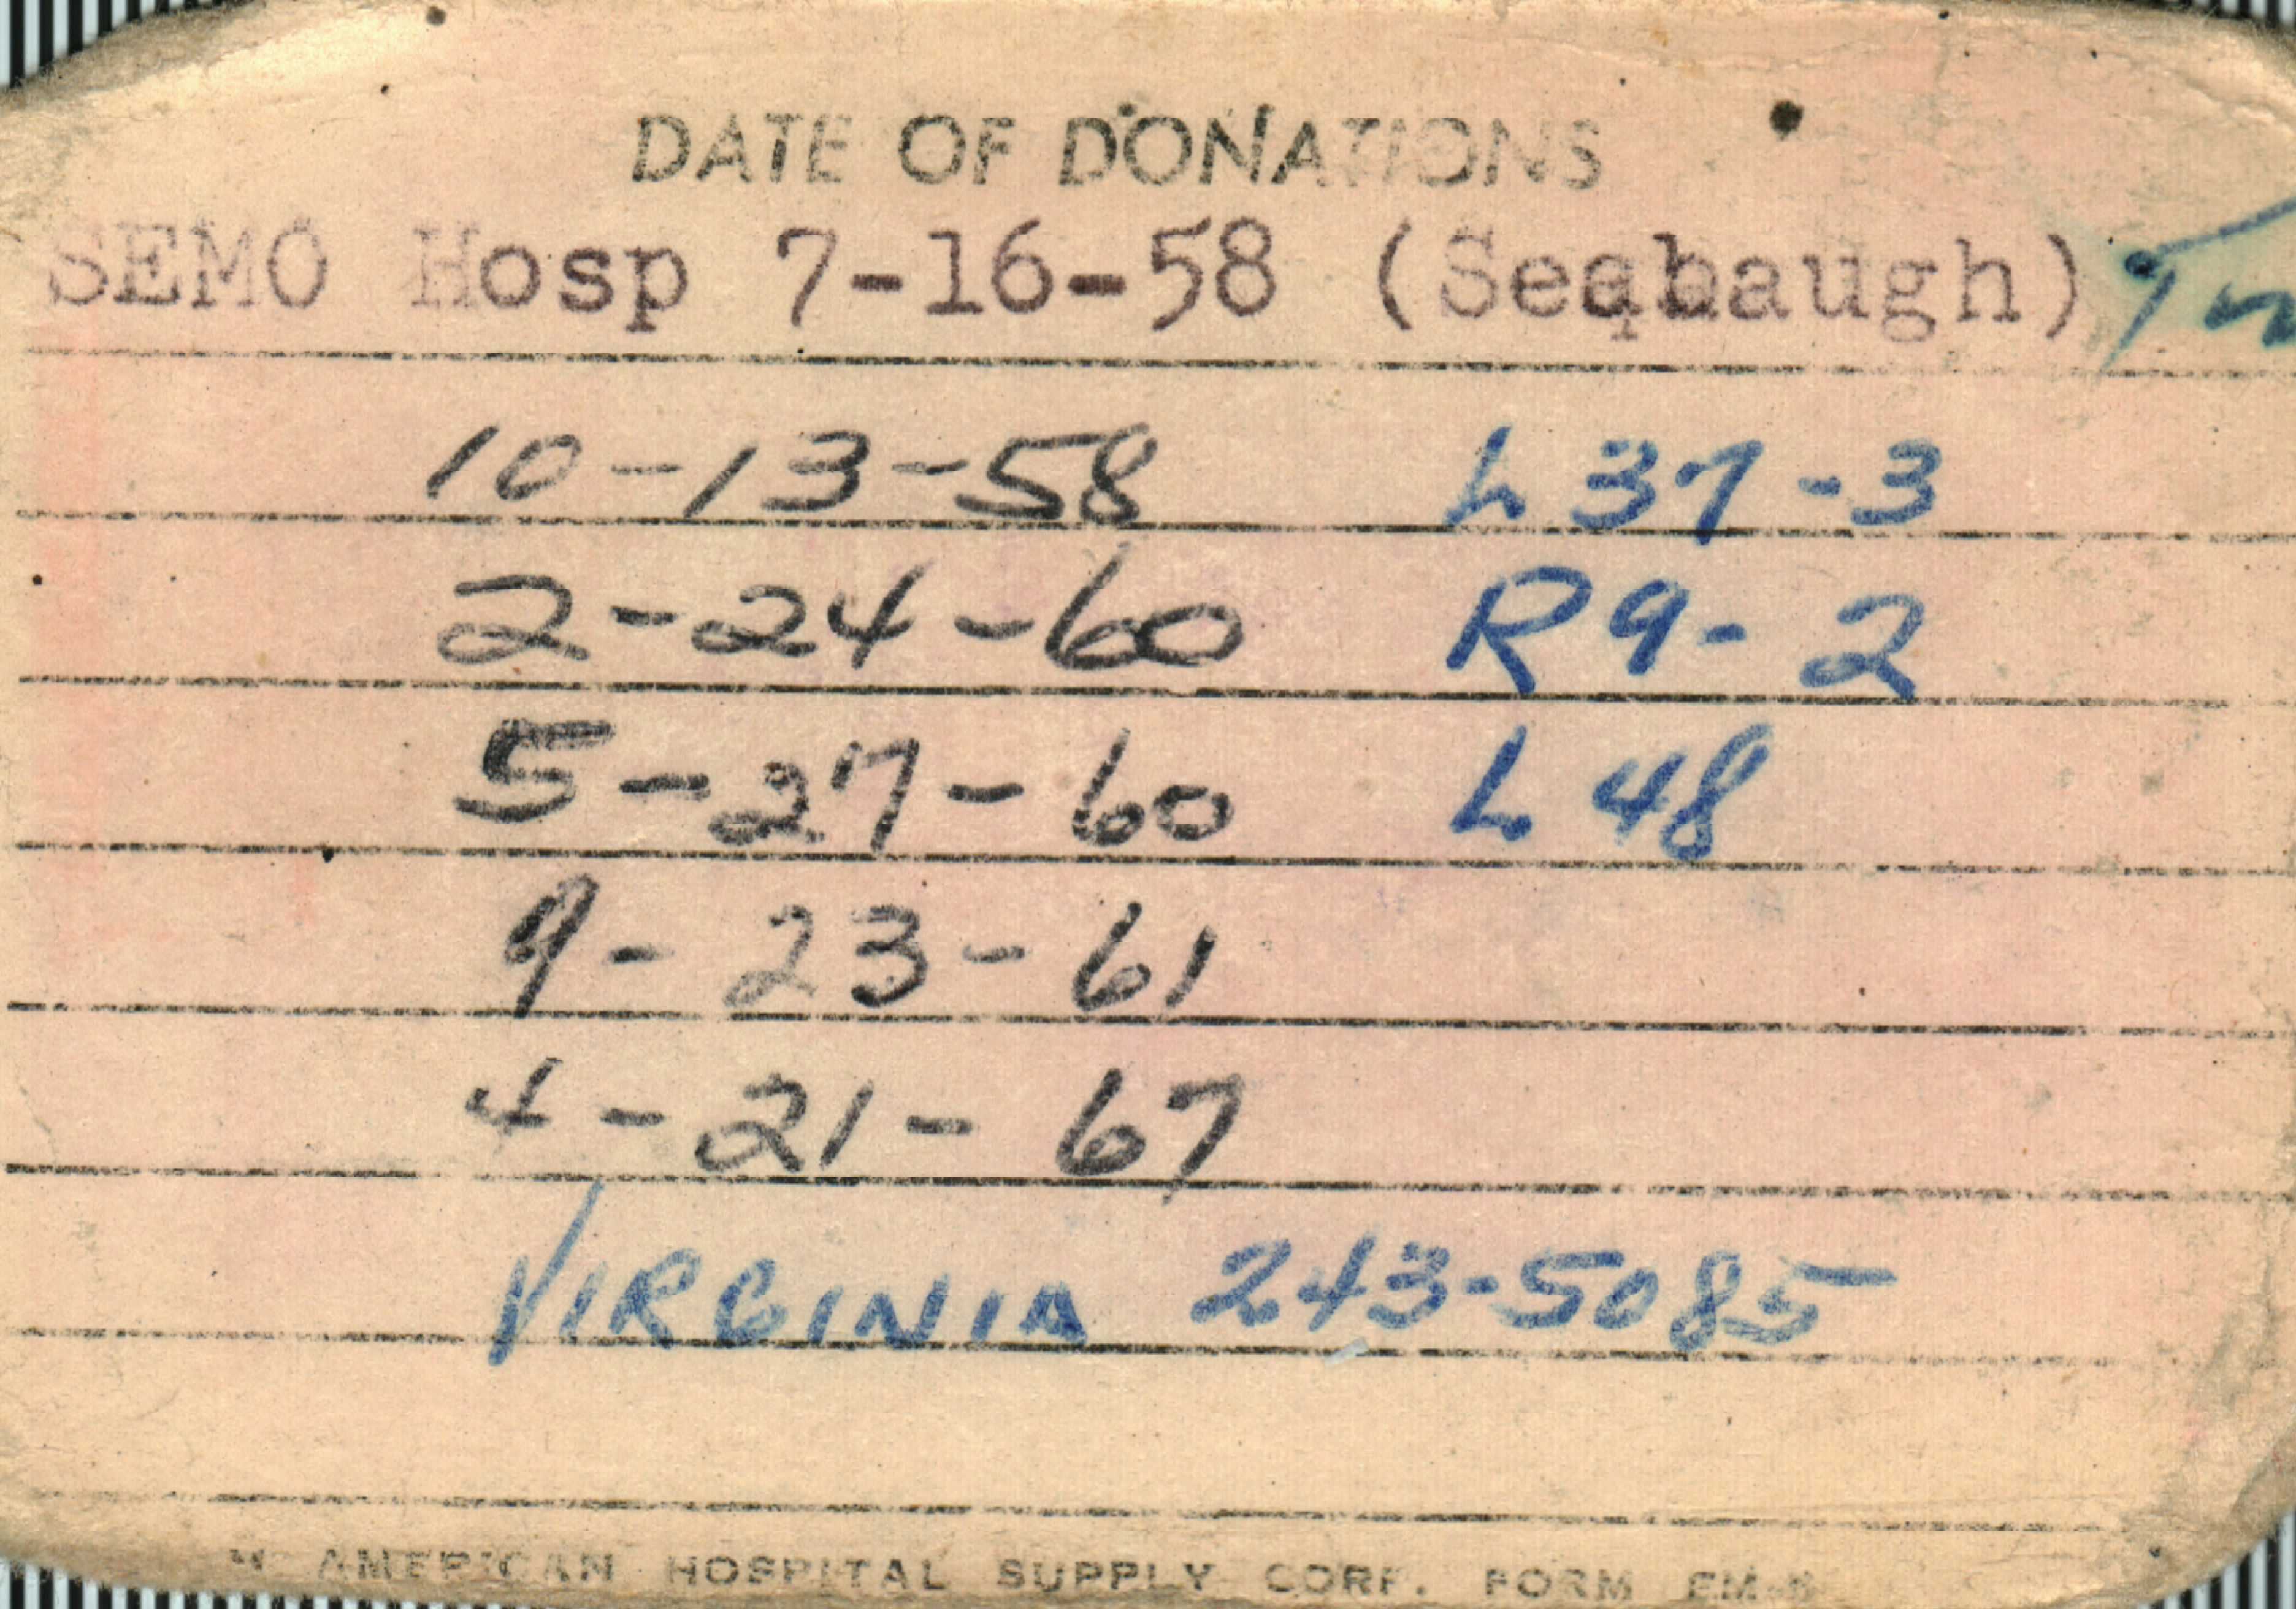 DATE OF DONATIONS
SEMO Hosp 7-16-58 (Seabaugh)
10-13-58 L 37-3
2-24-60 R 9-2
5-27-60 L 48
9-23-61
4-21-67
VIRGINIA 243-5085
AMERICAN HOSPITAL SUPPLY CORP. FORM